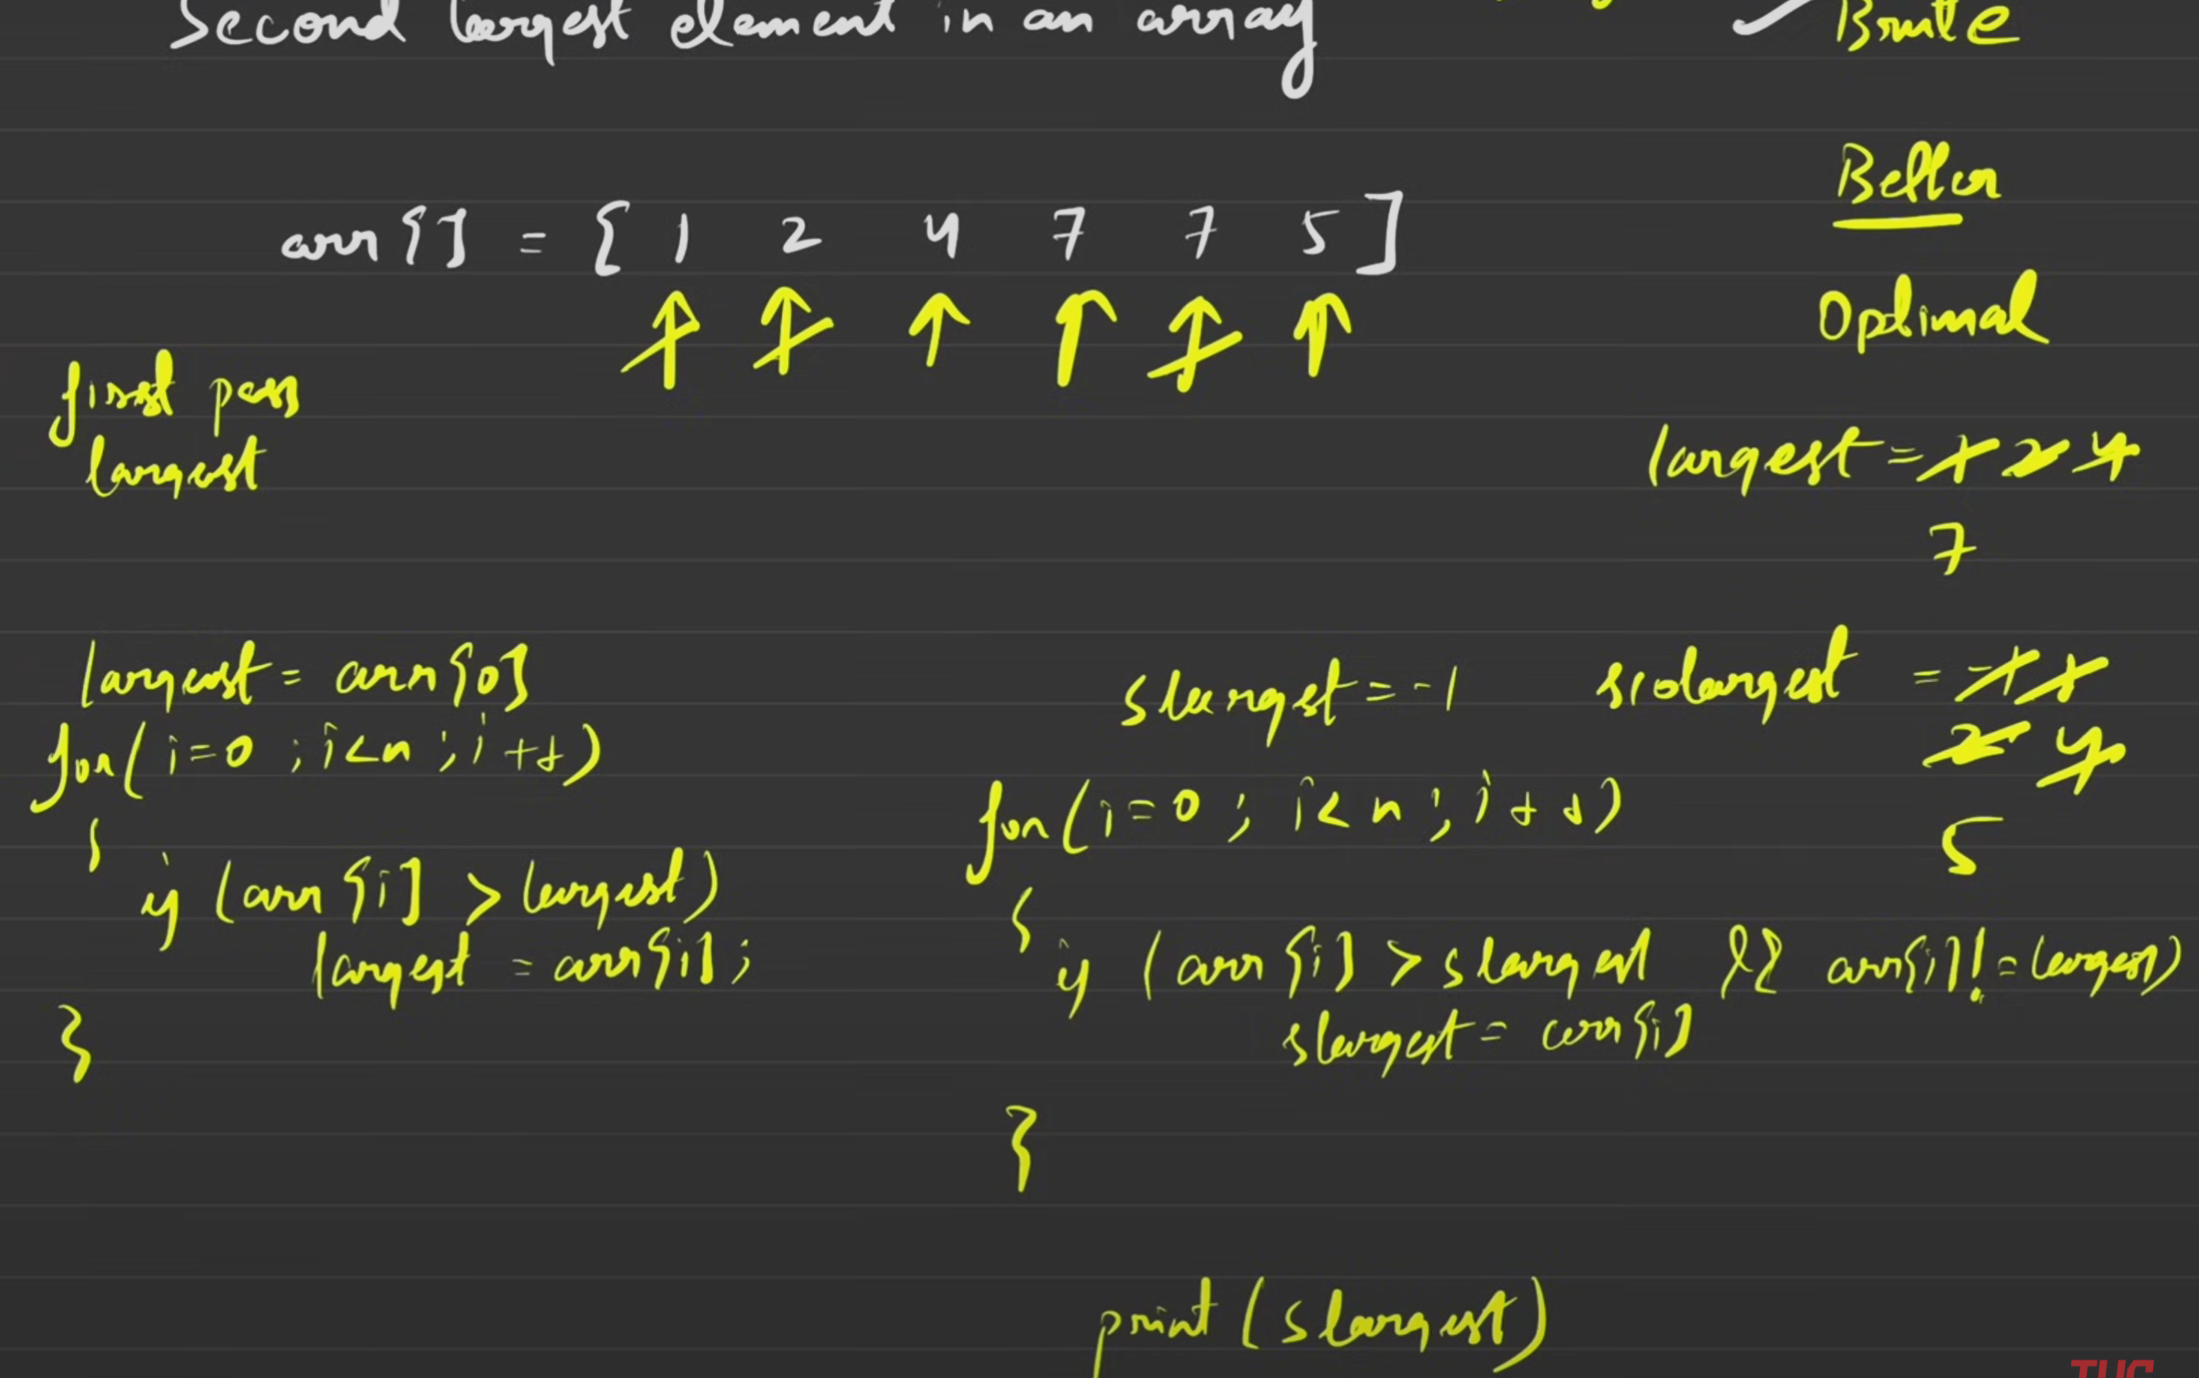 Second largest element in an array
Brute
Better
Optimal
arr[] = [ 1 2 4 7 7 5 ]
first pass
largest
largest = 1 2 4
7
largest = arr[0]
for(i=0 ; i<n ; i++)
{
if (arr[i] > largest)
largest = arr[i];
}
slargest = -1
for(i=0 ; i<n ; i++)
{
if (arr[i] > slargest && arr[i] != largest)
slargest = arr[i]
}
print(slargest)
= -1 1
2 4
5